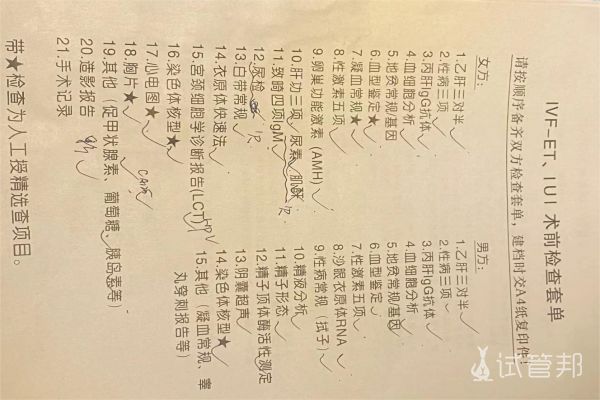 IVF-ET、IUI 术前检查套单
请按顺序备齐双方检查套单，建档时交A4纸复印件！
女方：
1.乙肝三对半
2.性病三项
3.丙肝IgG抗体
4.血细胞分析
5.地贫常规基因
6.血型鉴定★
7.凝血常规★
8.性激素五项
9.卵巢功能激素 (AMH)
10.肝功三项 尿素 肌酐
11.致畸四项IgM
12.尿检
13.白带常规
14.衣原体快速法
15.宫颈细胞学诊断报告(LCT)
16.染色体核型★
17.心电图★
18.胸片★
19.其他（促甲状腺素、葡萄糖、胰岛素等）
20.造影报告
21.手术记录
男方：
1.乙肝三对半
2.性病三项
3.丙肝IgG抗体
4.血细胞分析
5.地贫常规/基因
6.血型鉴定
7.性激素五项
8.沙眼衣原体RNA
9.性病常规（拭子）
10.精液分析
11.精子形态
12.精子顶体酶活性测定
13.阴囊超声
14.染色体核型★
15.其他（凝血常规、睾
丸穿刺报告等）
带★检查为人工授精选查项目。
试管邦